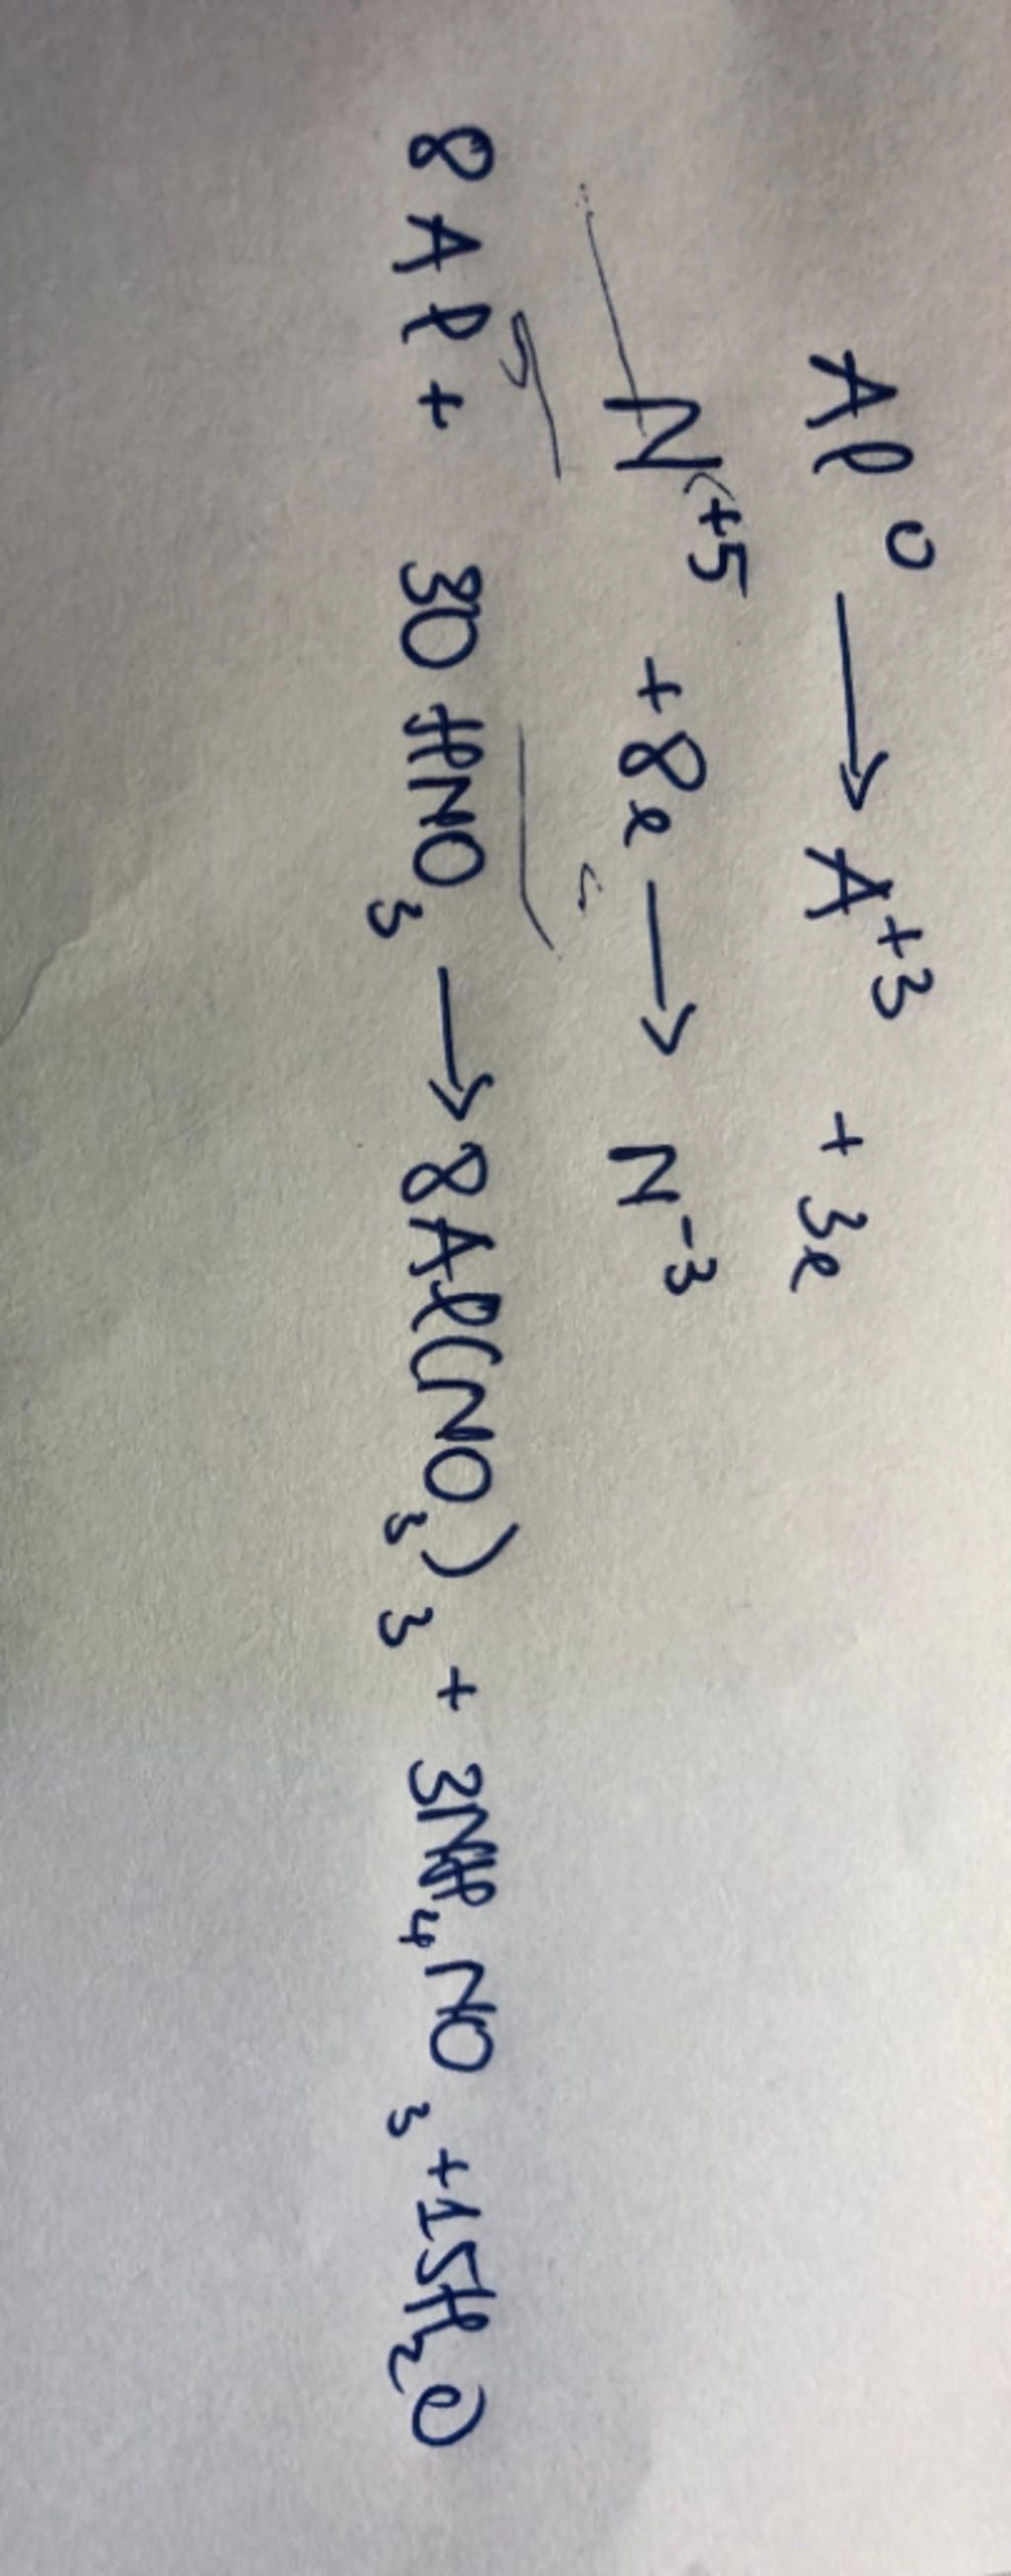 Al⁰ → A⁺³ + 3e
N⁺⁵ + 8e → N⁻³
8Al + 30HNO₃ → 8Al(NO₃)₃ + 3NH₄NO₃ + 15H₂O